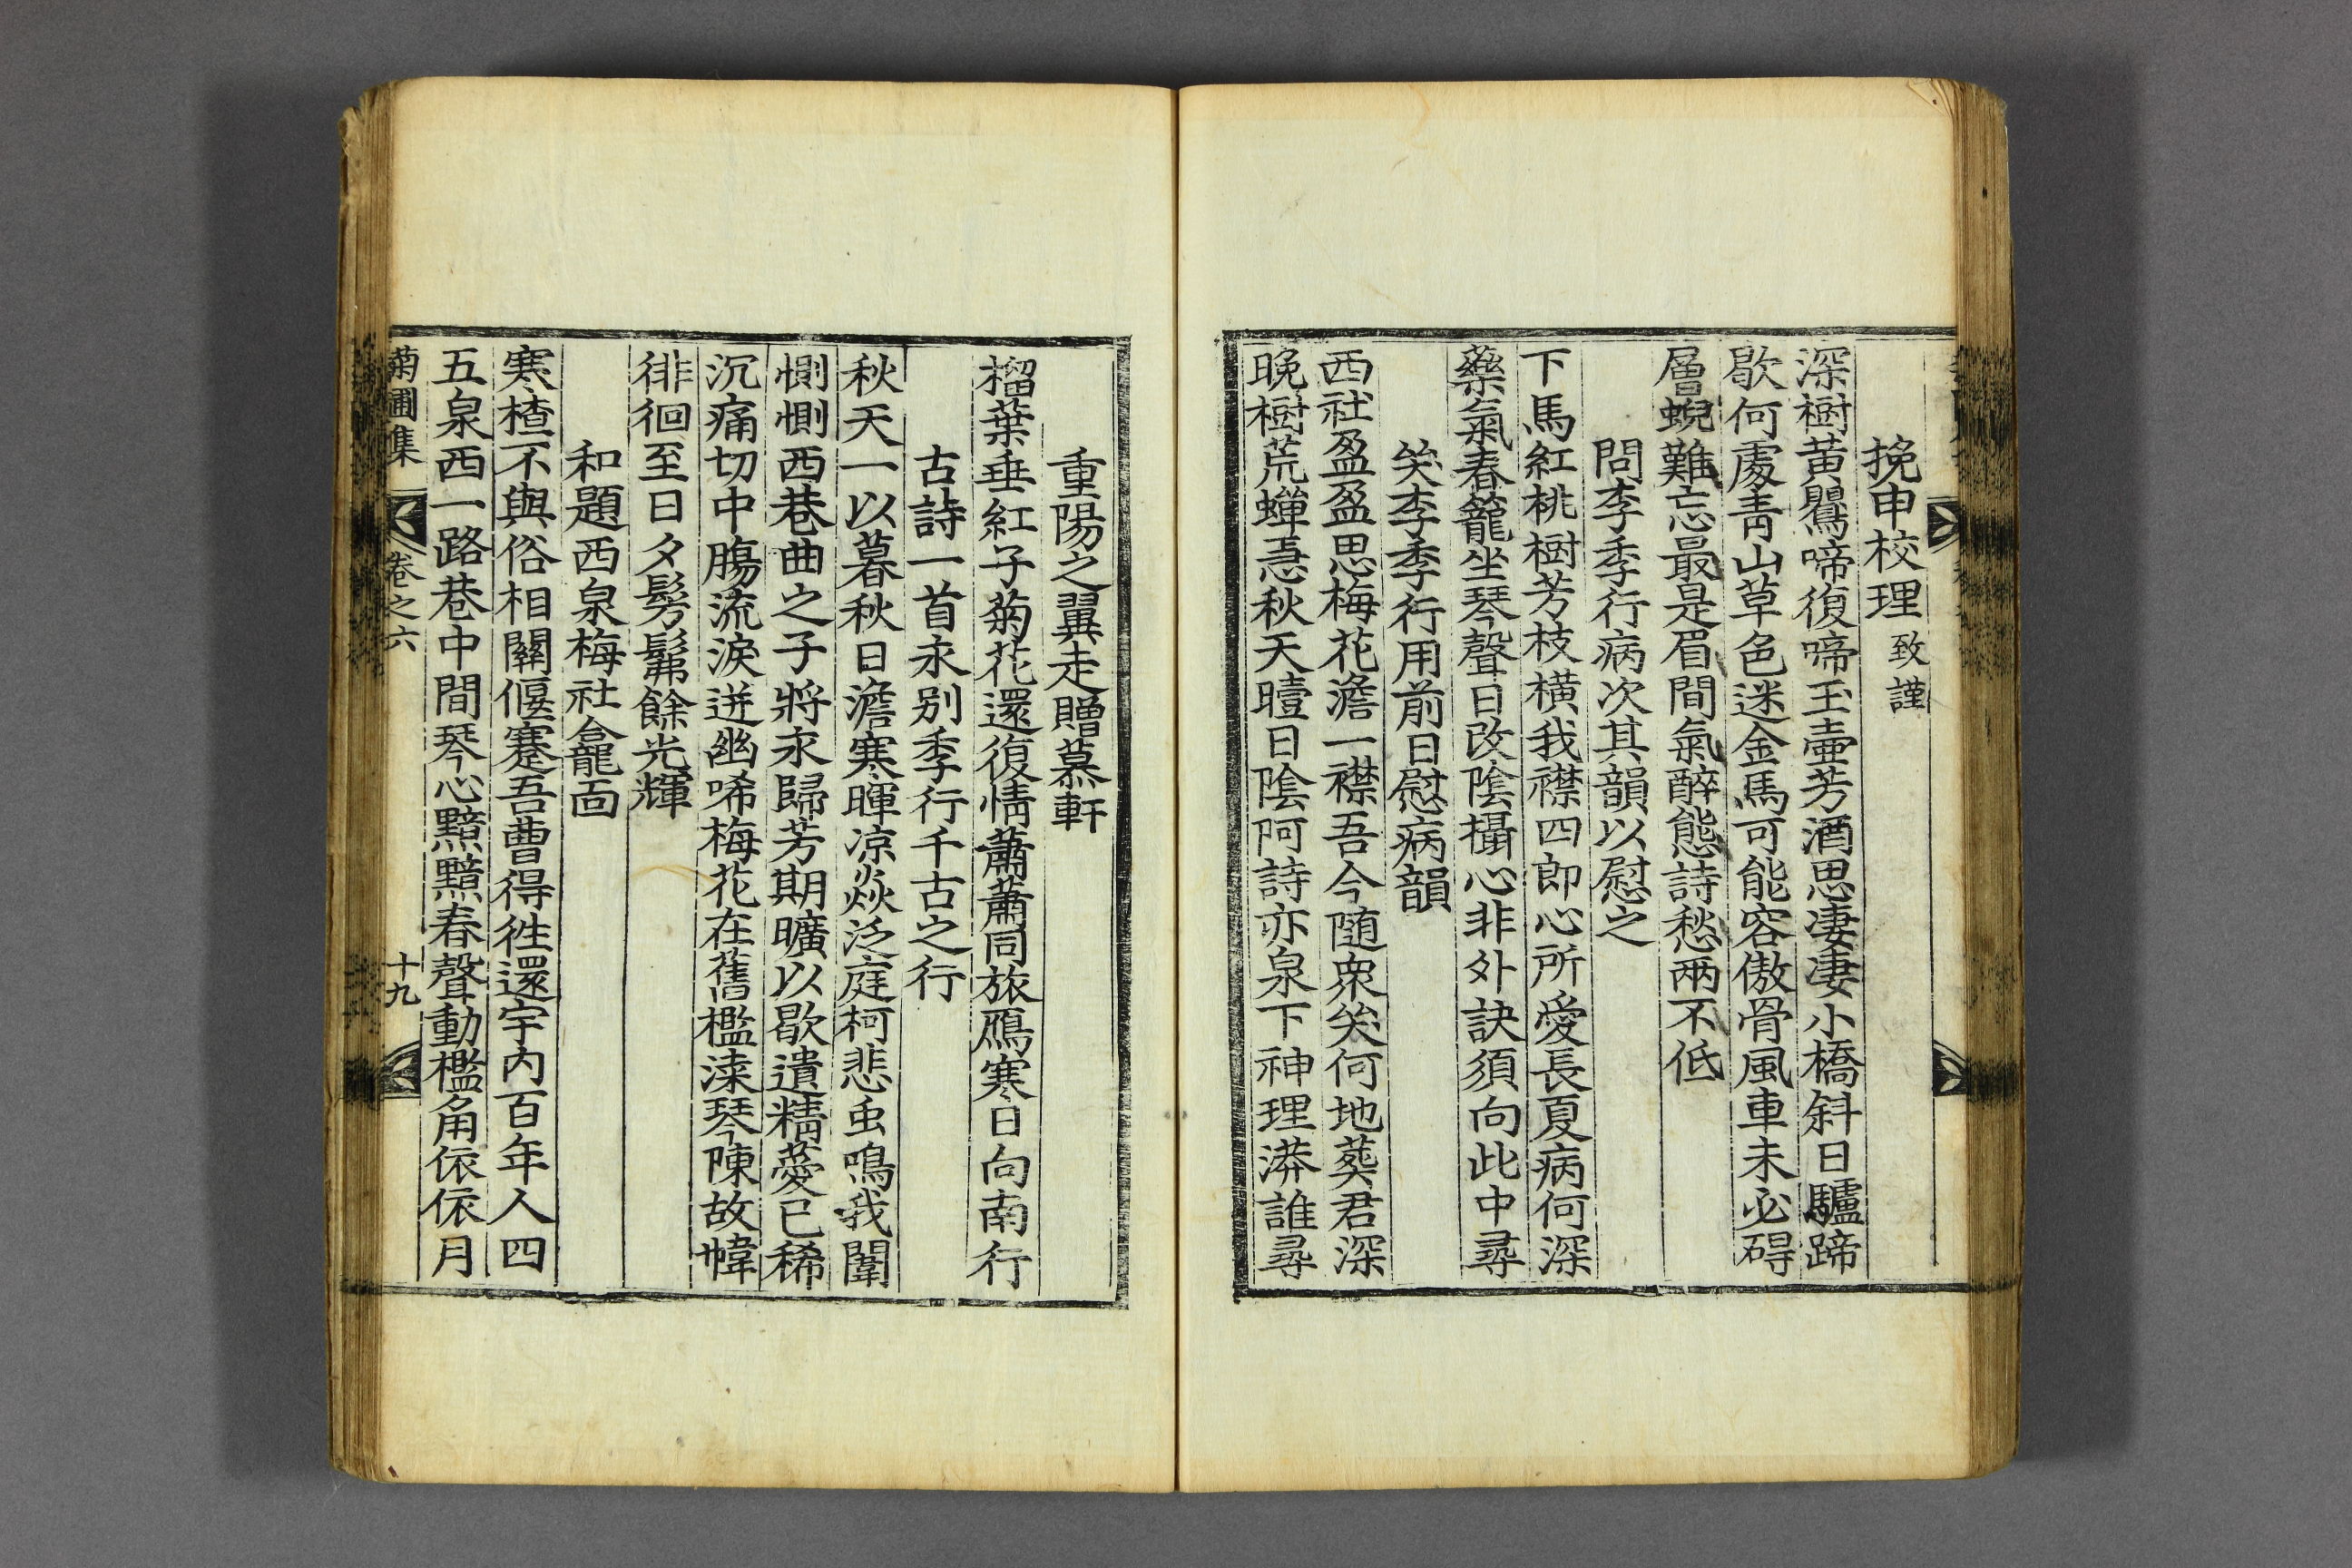 挽申校理致謹
深樹黃鸎啼復啼玉壷芳酒思凄凄小橋斜日驢蹄
歇何處靑山草色迷金馬可能容傲骨風車未必碍
層蜺難忘最是眉間氣醉態詩愁兩不低
問李季行病次其韻以慰之
下馬紅桃樹芳枝橫我襟四郎心所愛長夏病何深
藥氣春籠坐琴聲日改陰攝心非外訣須向此中尋
㗛李季行用前日慰病韻
西社盈盈思梅花澹一襟吾今隨衆㗛何地葬君深
晩樹荒蟬恚秋天曀日陰阿詩亦泉下神理漭誰尋
重陽之翼走贈慕軒
榴葉垂紅子菊花還復情蕭蕭同旅鴈寒日向南行
古詩一首永别季行千古之行
秋天一以暮秋日澹寒暉凉焱泛庭柯悲虫鳴我闈
惻惻西巷曲之子將永歸芳期曠以歇遺精薆已稀
沉痛切中膓流淚迸幽唏梅花在舊檻溙琴陳故幃
徘徊至日夕髣髴餘光輝
和題西泉梅社龕面
寒楂不與俗相關偃蹇吾曹得徃還宇內百年人四
五泉西一路巷中間琴心黯黯春聲動檻角依依月
菊圃集 卷之六 十九